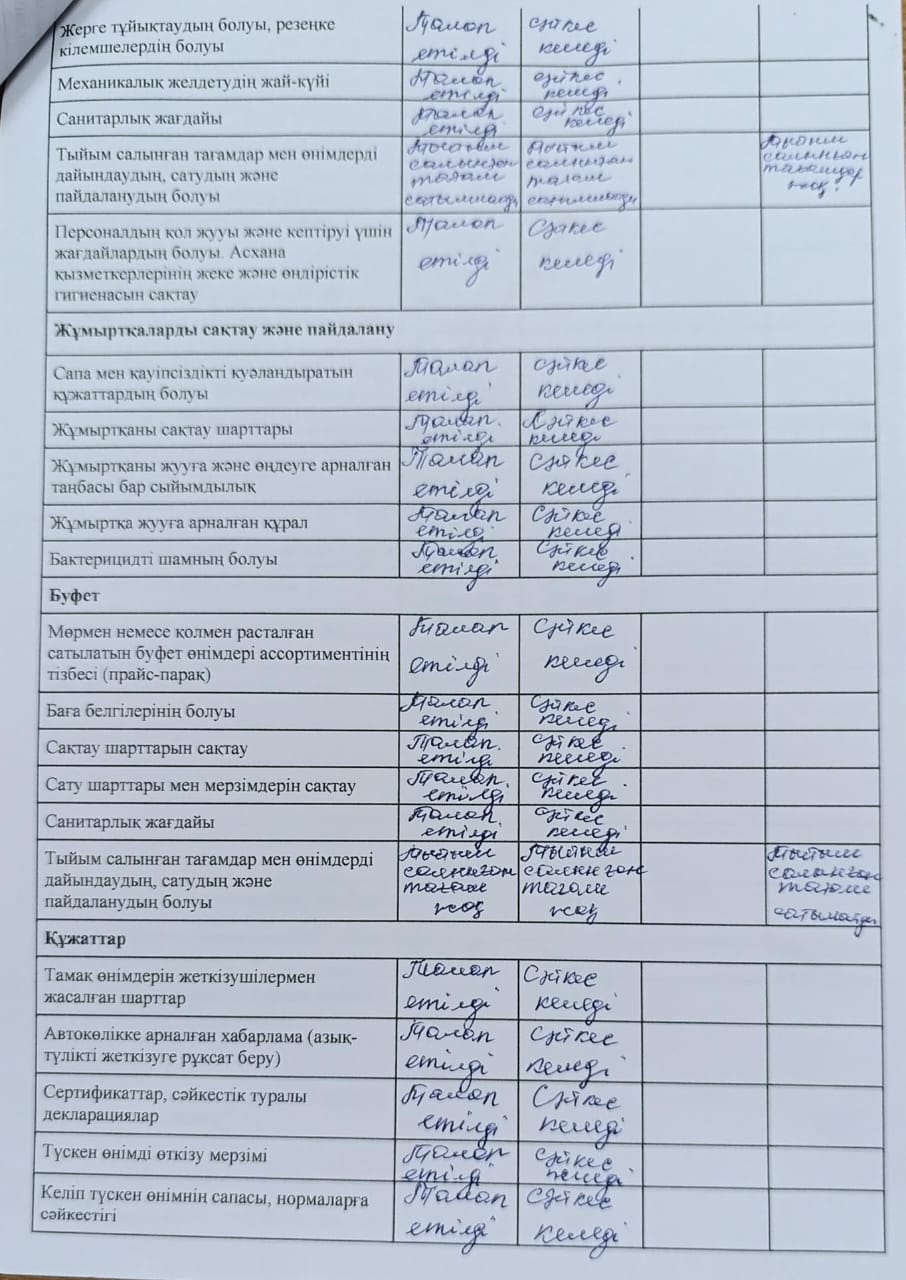 Жерге тұйықтаудың болуы, резеңке
кілемшелердің болуы
Талап
етілді
сәйкес
келеді
Механикалық желдетудің жай-күйі
Талап
етілді
сәйкес
келеді
Санитарлық жағдайы
Талап
етілді
сәйкес
келеді
Тыйым салынған тағамдар мен өнімдерді
дайындаудың, сатудың және
пайдаланудың болуы
Тыйым
салынған
тағам
сатылмайды
Тыйым
салынған
тағам
сатылмайды
Тыйым
салынған
тағамдар
жоқ.
Персоналдың қол жууы және кептіруі үшін
жағдайлардың болуы. Асхана
қызметкерлерінің жеке және өндірістік
гигиенасын сақтау
Талап
етілді
Сәйкес
келеді
Жұмыртқаларды сақтау және пайдалану
Сапа мен қауіпсіздікті куәландыратын
құжаттардың болуы
Талап
етілді
сәйкес
келеді
Жұмыртқаны сақтау шарттары
Талап
етілді
Сәйкес
келеді
Жұмыртқаны жууға және өңдеуге арналған
таңбасы бар сыйымдылық
Талап
етілді
Сәйкес
келеді
Жұмыртқа жууға арналған құрал
Талап
етілді
Сәйкес
келеді
Бактерицидті шамның болуы
Талап
етілді
Сәйкес
келеді
Буфет
Мөрмен немесе қолмен расталған
сатылатын буфет өнімдері ассортиментінің
тізбесі (прайс-парақ)
Талап
етілді
Сәйкес
келеді
Баға белгілерінің болуы
Талап
етілді
Сәйкес
келеді
Сақтау шарттарын сақтау
Талап
етілді
Сәйкес
келеді
Сату шарттары мен мерзімдерін сақтау
Талап
етілді
Сәйкес
келеді
Санитарлық жағдайы
Талап
етілді
Сәйкес
келеді
Тыйым салынған тағамдар мен өнімдерді
дайындаудың, сатудың және
пайдаланудың болуы
Тыйым
салынған
тағам
жоқ
Тыйым
салынған
тағам
жоқ
Тыйым
салынған
тағам
сатылмайды
Құжаттар
Тамақ өнімдерін жеткізушілермен
жасалған шарттар
Талап
етілді
Сәйкес
келеді
Автокөлікке арналған хабарлама (азық-
түлікті жеткізуге рұқсат беру)
Талап
етілді
Сәйкес
келеді
Сертификаттар, сәйкестік туралы
декларациялар
Талап
етілді
Сәйкес
келеді
Түскен өнімді өткізу мерзімі
Талап
етілді
Сәйкес
келеді
Келіп түскен өнімнің сапасы, нормаларға
сәйкестігі
Талап
етілді
Сәйкес
келеді